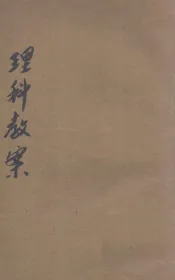 理科教案